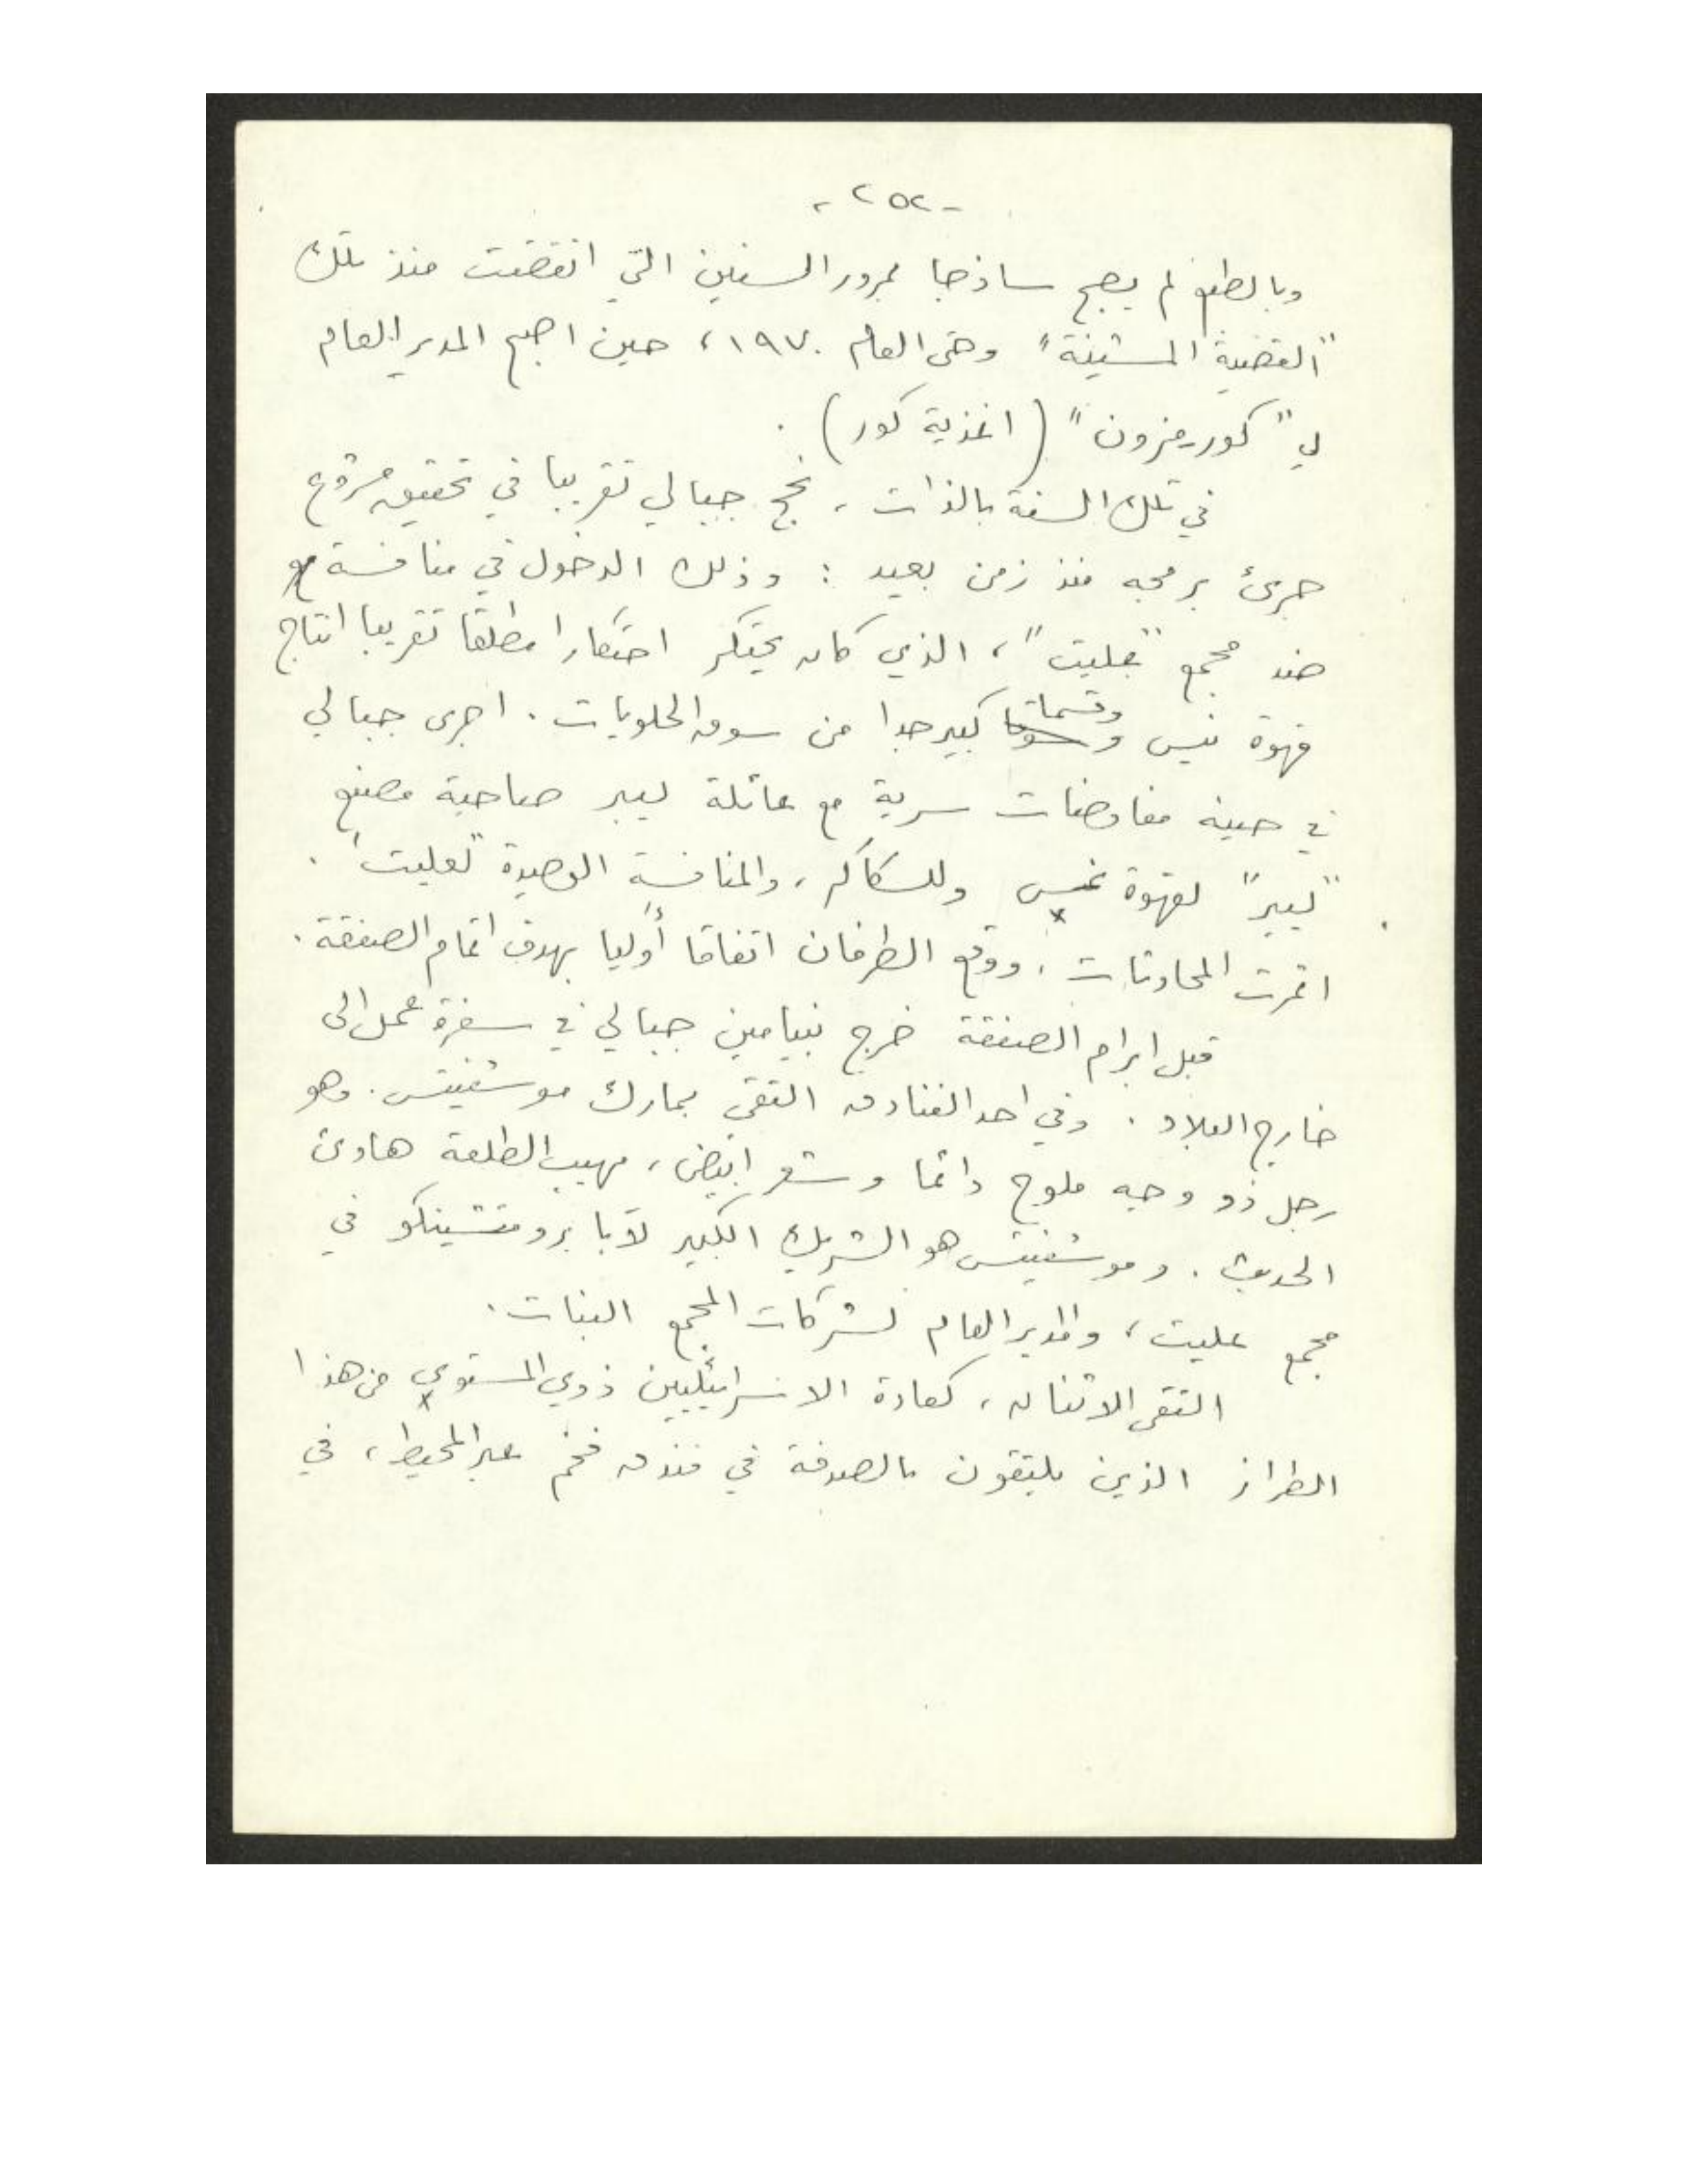 - ٢٥٢ -
وبالطبع لم يصبح ساذجا بمرور السنين التي انقضت منذ تلك
"القضية المشينة" وحتى العام ١٩٧٠، حين اصبح المدير العام
لي "كور-مزون" (اغذية كور).
في تلك السنة بالذات، نجح جبالي تقريبا في تحقيق مشروع
جريء برمجه منذ زمن بعيد : وذلك الدخول في منافسة
ضد مجمع "عليت"، الذي كان يحتكر احتكارا مطلقا تقريبا انتاج
قهوة نيس وقسما كبير جدا من سوق الحلويات. اجرى جبالي
في حينه مفاوضات سرية مع عائلة ليبر صاحبة مصنع
"ليبر" لقهوة نمس وللسكاكر، والمنافسة الوحيدة "لعليت".
اثمرت المحادثات، ووقع الطرفان اتفاقا أوليا بهدف اتمام الصفقة.
قبل ابرام الصفقة خرج بنيامين جبالي في سفرة عمل الى
خارج البلاد. وفي احد الفنادق التقى بمارك موشفيتس. وهو
رجل ذو وجه ملوح دائما وشعر ابيض، مهيب الطلعة هادئ
الحديث. وموشفيتس هو الشريك الكبير لآبا برومتشينكو في
مجمع عليت، والمدير العام لشركات المجمع البنات.
التقى الاثنان، كعادة الاسرائيليين ذوي المستوى من هذا
الطراز الذين يلتقون بالصدفة في فندق فخم عبر المحيط، في